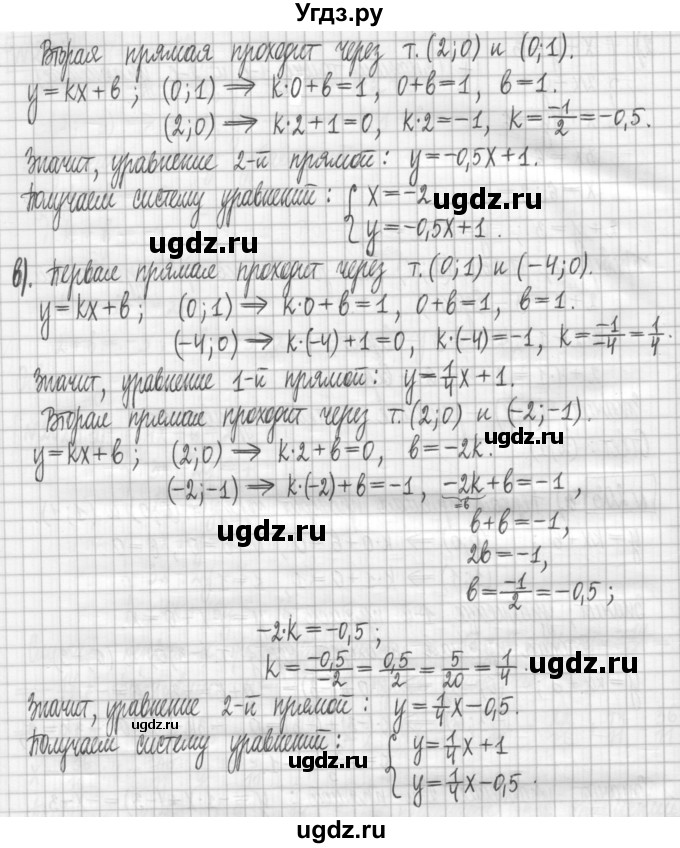 Угдз.ру
Вторая прямая проходит через т. (2;0) и (0;1).
y=kx+b; (0;1) ⇒ k·0+b=1, 0+b=1, b=1.
(2;0) ⇒ k·2+1=0, k·2=-1, k=-1/2=-0,5.
Значит, уравнение 2-й прямой: y=-0,5x+1.
Получаем систему уравнений: { x=-2
ugdz.ru
y=-0,5x+1.
ugdz.ru
ugdz.ru
в). Первая прямая проходит через т. (0;1) и (-4;0).
y=kx+b; (0;1) ⇒ k·0+b=1, 0+b=1, b=1.
(-4;0) ⇒ k·(-4)+1=0, k·(-4)=-1, k=-1/-4=1/4.
Значит, уравнение 1-й прямой: y=1/4x+1.
Вторая прямая проходит через т. (2;0) и (-2;-1).
ugdz.ru
y=kx+b; (2;0) ⇒ k·2+b=0, b=-2k.
(-2;-1) ⇒ k·(-2)+b=-1, -2k+b=-1,
=b
ugdz.ru
b+b=-1,
2b=-1,
b=-1/2=-0,5;
-2·k=-0,5;
k=-0,5/-2=0,5/2=5/20=1/4.
Значит, уравнение 2-й прямой: y=1/4x-0,5.
ugdz.ru
Получаем систему уравнений: { y=1/4x+1
ugdz.ru
y=1/4x-0,5.
ugdz.ru